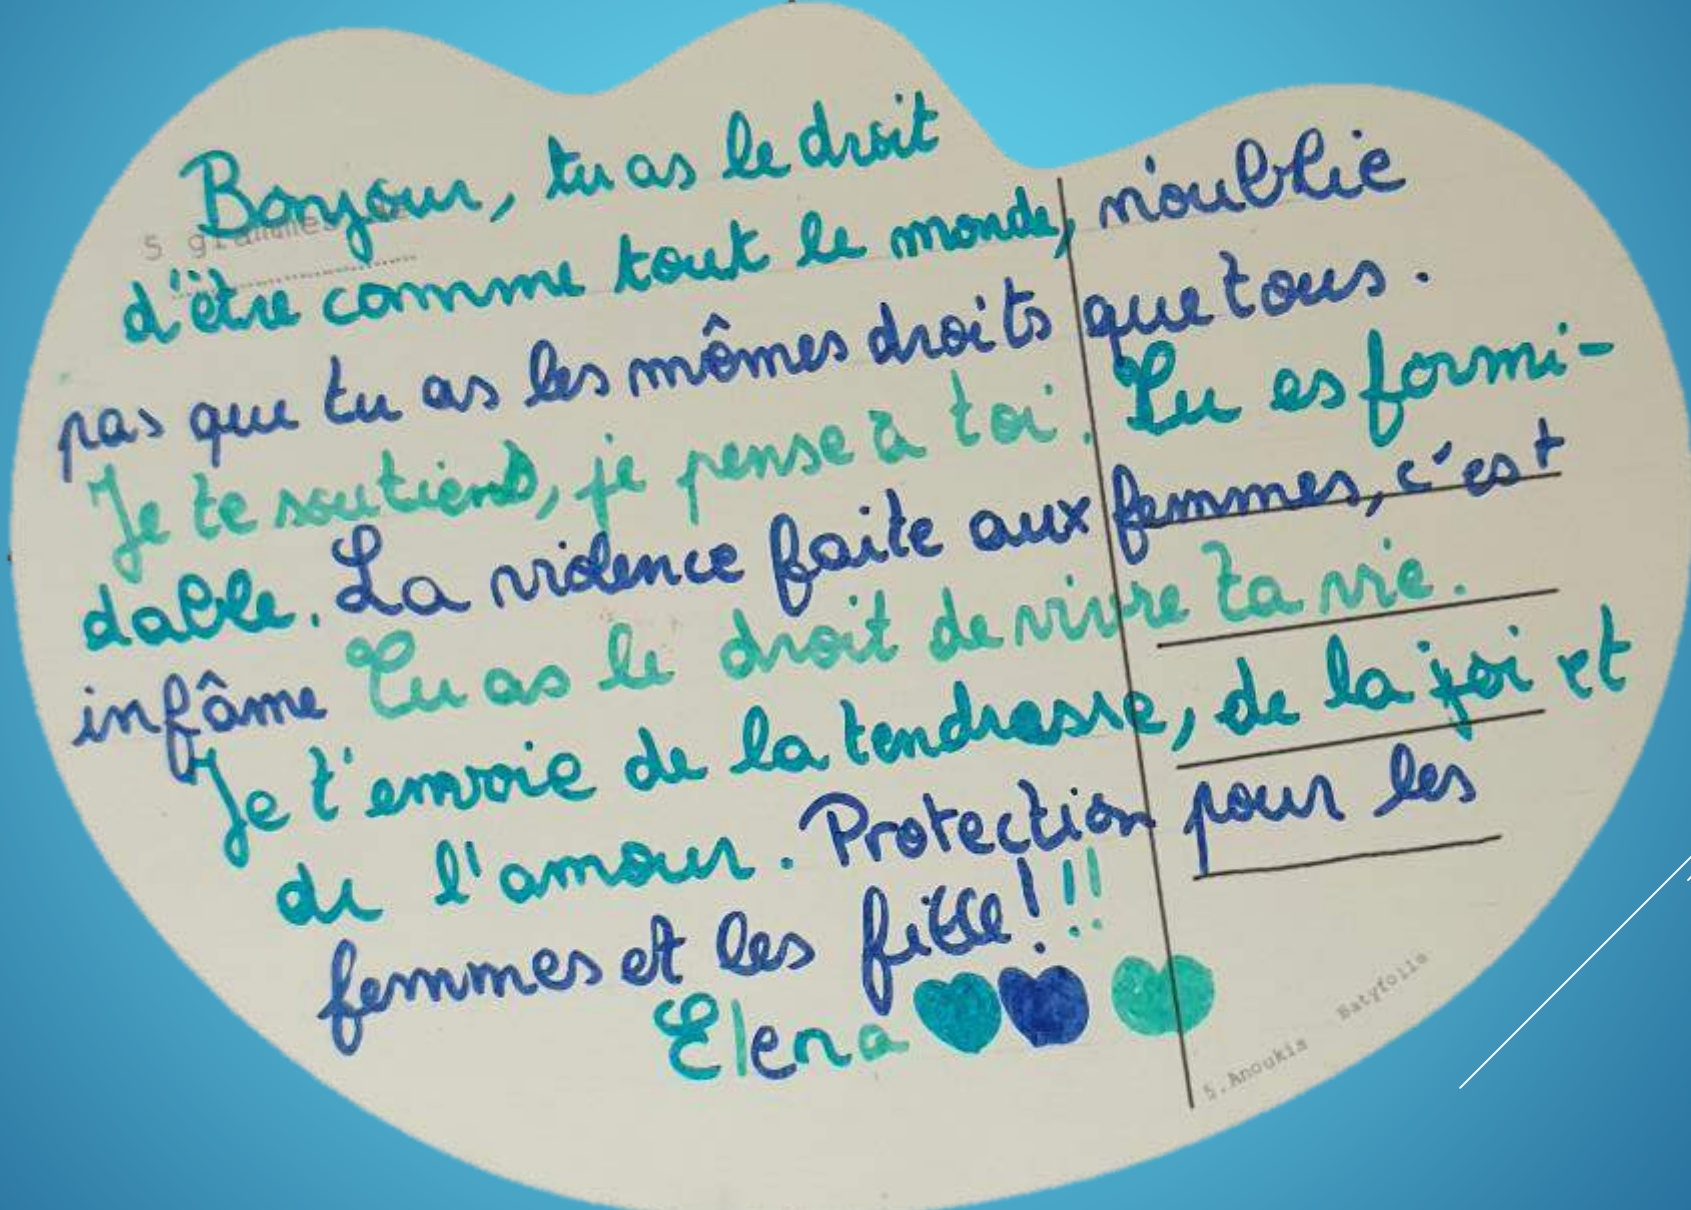 Bonjour, tu as le droit
5 grammes
d'être comme tout le monde, n'oublie
pas que tu as les mômes droits que tous.
Je te soutiens, je pense à toi. Tu es formi-
dable. La violence faite aux femmes, c'est
infâme Tu as le droit de vivre ta vie.
Je t'envoie de la tendresse, de la joi et
de l'amour. Protection pour les
femmes et les fille!!!
Elena
5. Anoukis Batyfolle